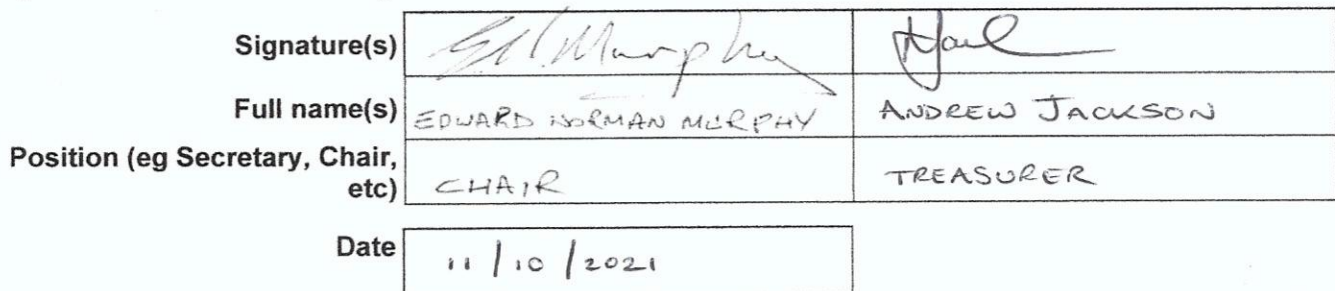 Signature(s) E.N. Murphy
Full name(s) EDWARD NORMAN MURPHY ANDREW JACKSON
Position (eg Secretary, Chair,
etc) CHAIR TREASURER
Date 11/10/2021